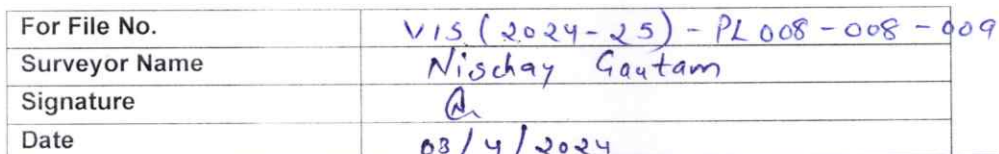 For File No. VIS (2024-25) - PL008 - 008 - 009
Surveyor Name Nischay Gautam
Signature
Date 03/4/2024